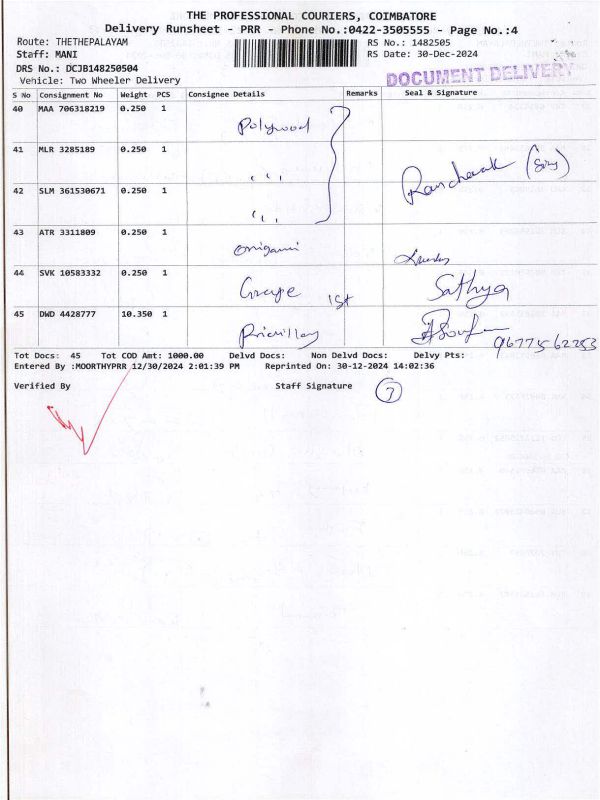 THE PROFESSIONAL COURIERS, COIMBATORE
Delivery Runsheet - PRR - Phone No.:0422-3505555 - Page No.:4
Route: THETHEPALAYAM RS No.: 1482505
Staff: MANI RS Date: 30-Dec-2024
DRS No.: DCJB148250504
DOCUMENT DELIVERY
Vehicle: Two Wheeler Delivery
S No Consignment No Weight PCS Consignee Details Remarks Seal & Signature
40 MAA 706318219 0.250 1
Polywood
41 MLR 3285189 0.250 1
42 SLM 361530671 0.250 1
43 ATR 3311809 0.250 1
origami
44 SVK 10583332 0.250 1
Grape 1st Sathya
45 DWD 4428777 10.350 1
9677562253
Tot Docs: 45 Tot COD Amt: 1000.00 Delvd Docs: Non Delvd Docs: Delvy Pts:
Entered By :MOORTHYPRR 12/30/2024 2:01:39 PM Reprinted On: 30-12-2024 14:02:36
Verified By Staff Signature 7